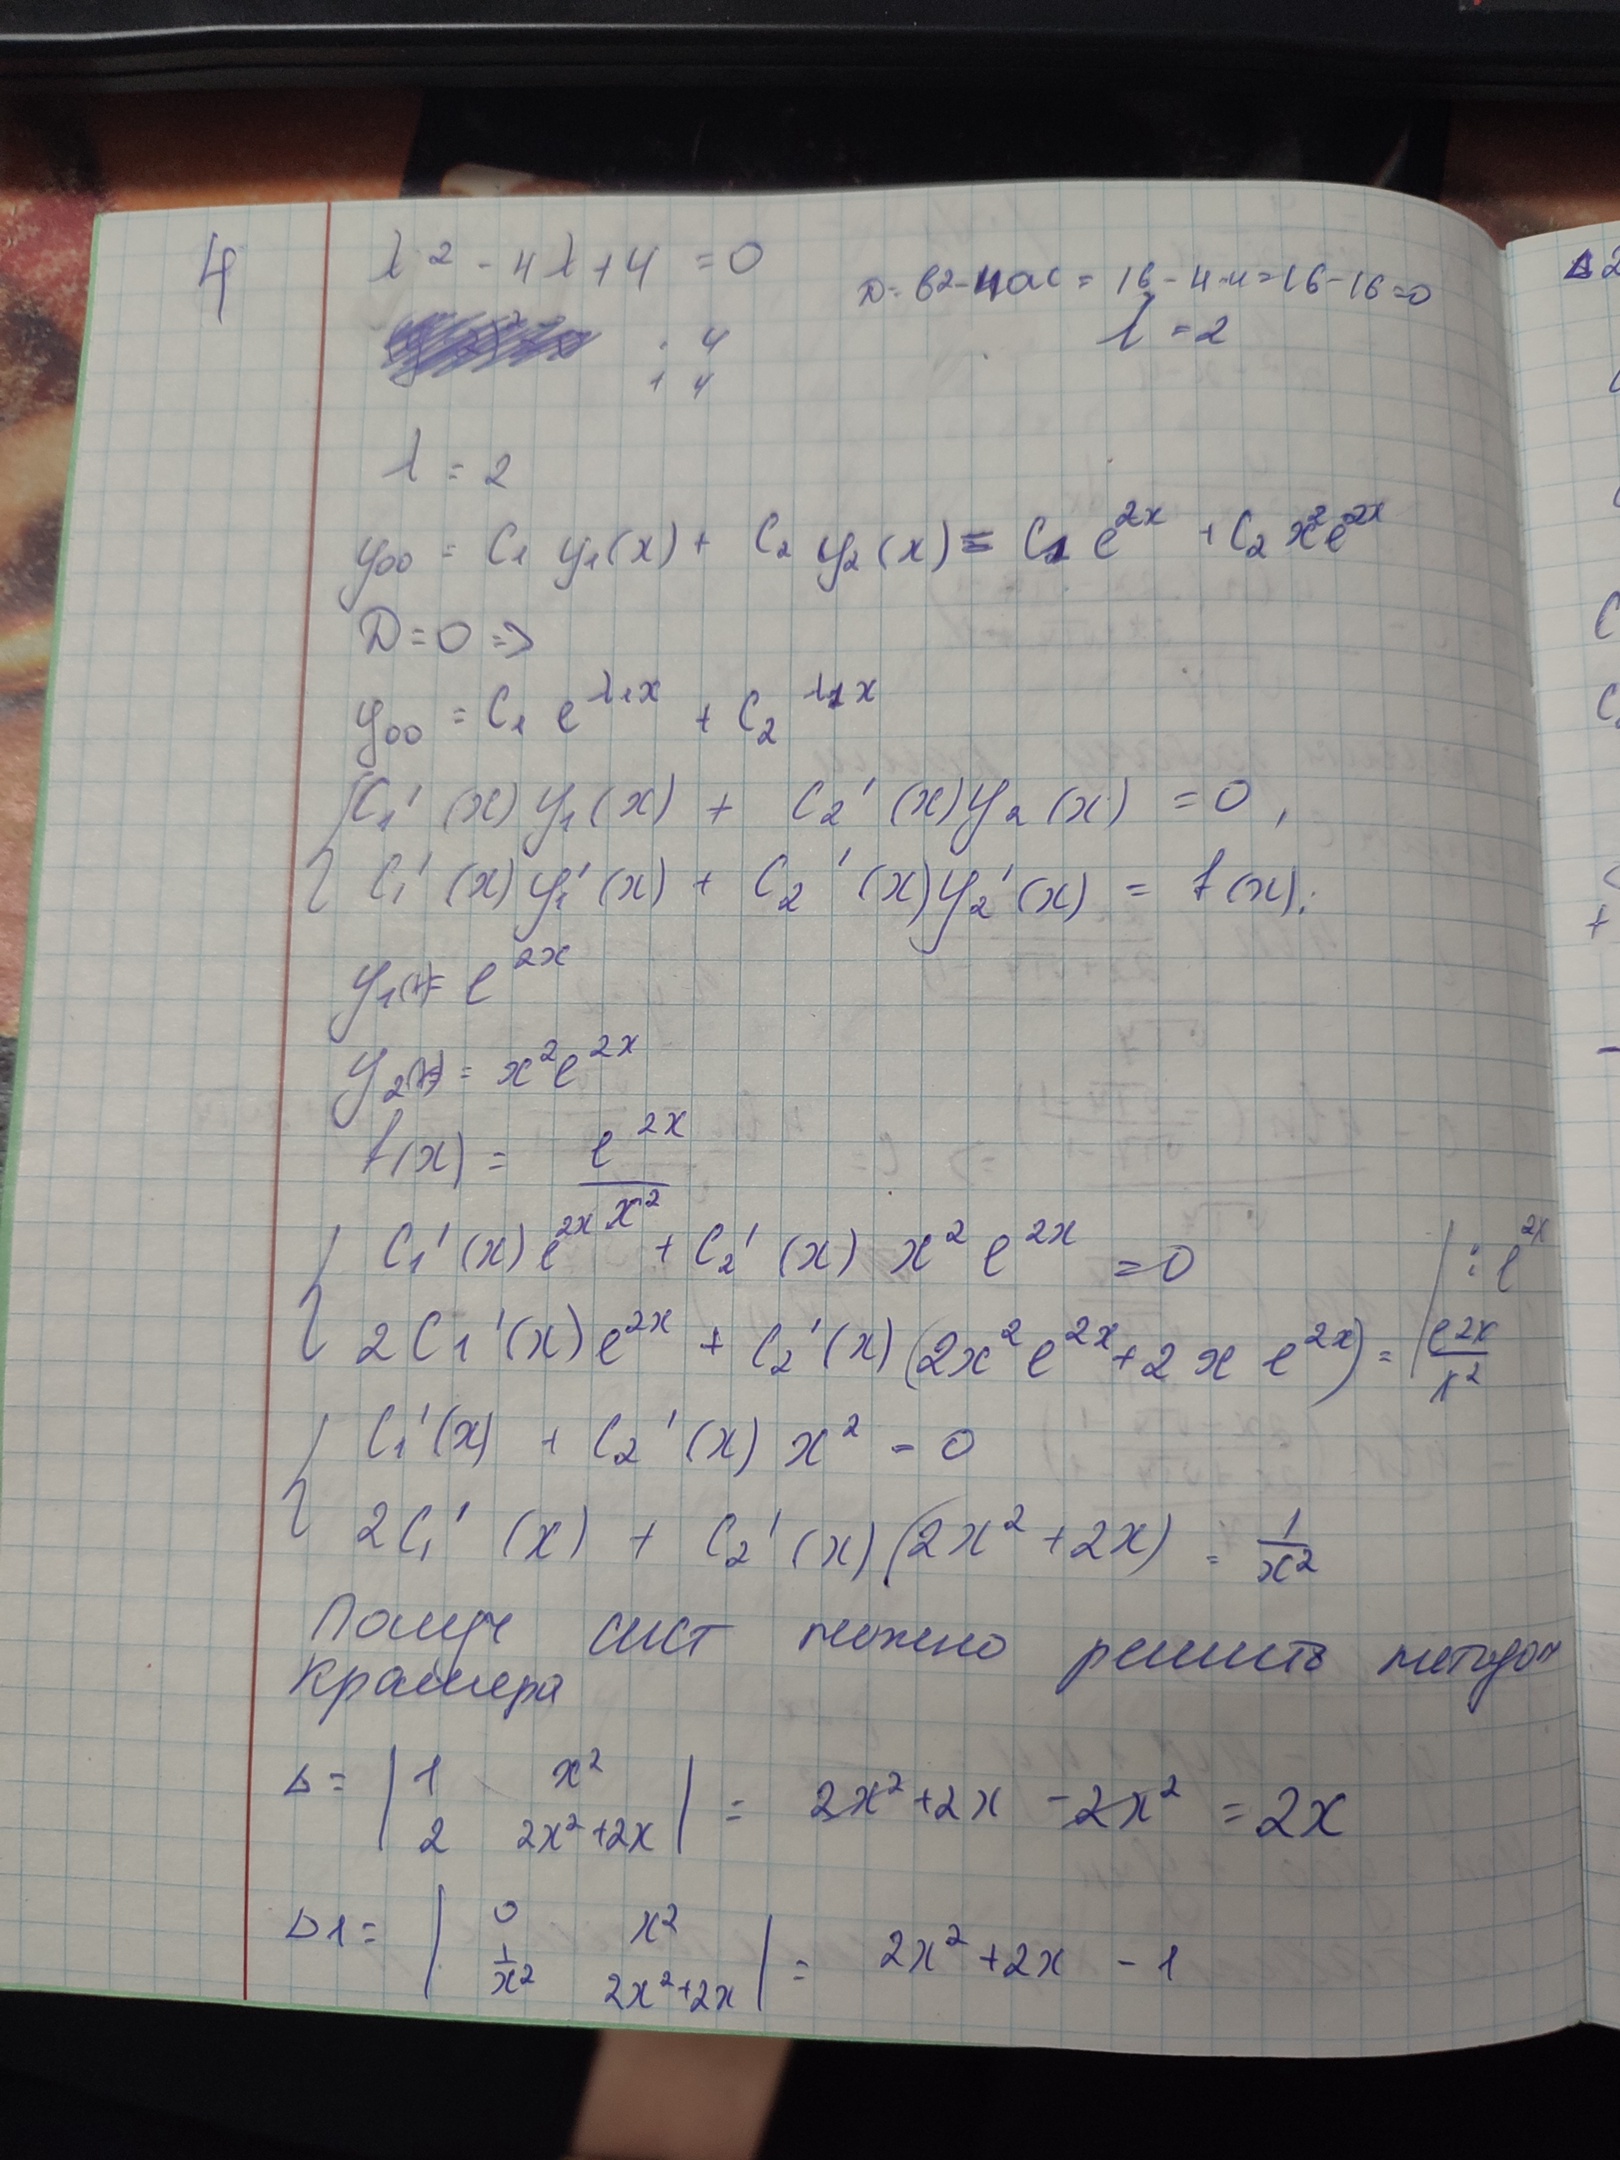 4
λ² - 4λ + 4 = 0
D = b2 - 4ac = 16 - 4·4 = 16 - 16 = 0
λ = 2
· 4
1 4
λ = 2
y00 = C1 y1(x) + C2 y2(x) = C1 e^{2x} + C2 x²e^{2x}
D = 0 =>
y00 = C1 e^{λ1x} + C2^{λ1x}
{ C1'(x) y1(x) + C2'(x) y2(x) = 0,
C1'(x) y1'(x) + C2'(x) y2'(x) = f(x);
y1(x) = e^{2x}
y2(x) = x²e^{2x}
f(x) = e^{2x}/x²
{ C1'(x) e^{2x} + C2'(x) x² e^{2x} = 0 | : e^{2x}
2C1'(x) e^{2x} + C2'(x) (2x² e^{2x} + 2x e^{2x}) = | e^{2x}/x²
{ C1'(x) + C2'(x) x² = 0
2C1'(x) + C2'(x) (2x² + 2x) = 1/x²
Получ сист можно решить методом
Крамера
Δ = | 1 x² ; 2 2x²+2x | = 2x² + 2x - 2x² = 2x
Δ1 = | 0 x² ; 1/x² 2x²+2x | = 2x² + 2x - 1
Δ2